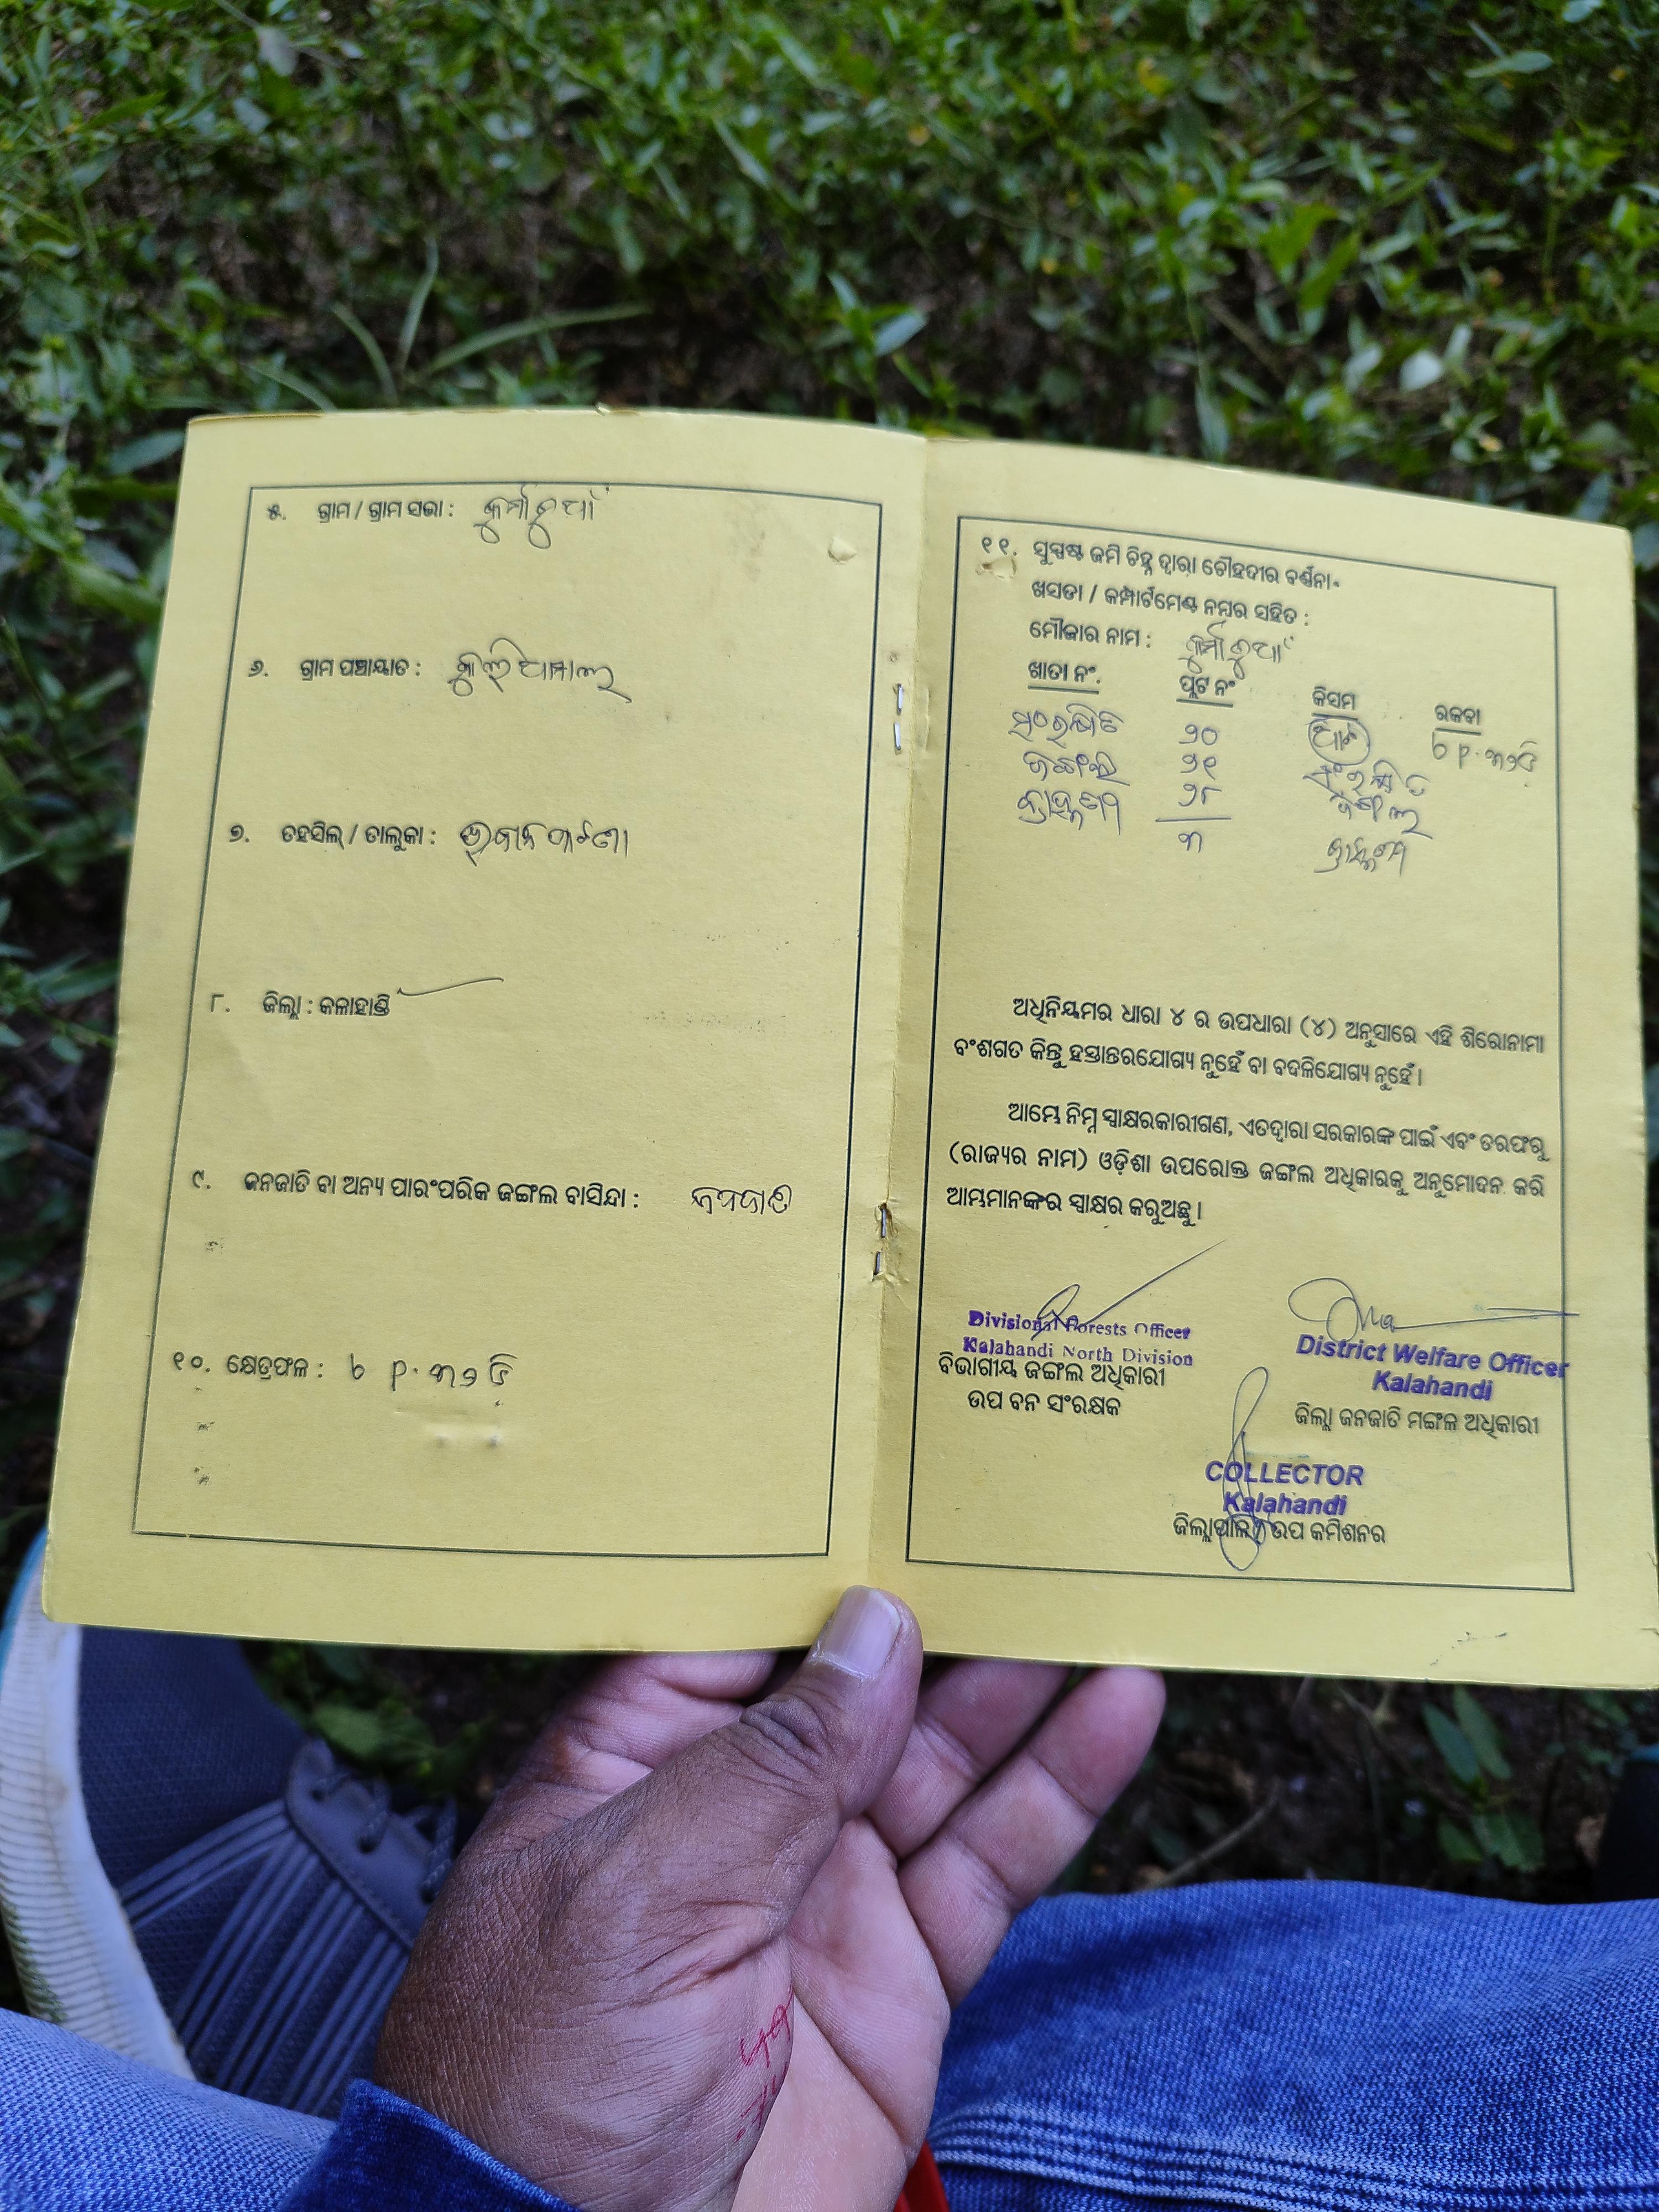 ୫. ଗ୍ରାମ / ଗ୍ରାମ ସଭା : କୁର୍ମାନୁଆଁ
୬. ଗ୍ରାମ ପଞ୍ଚାୟାତ :
୭. ତହସିଲ୍ / ତାଲୁକା :
୮. ଜିଲ୍ଲା : କଳାହାଣ୍ଡି
୯. ଜନଜାତି ବା ଅନ୍ୟ ପାରଂପରିକ ଜଙ୍ଗଲ ବାସିନ୍ଦା : ଜନଜାତି
୧୦. କ୍ଷେତ୍ରଫଳ :
୧୧. ସୁସ୍ପଷ୍ଟ ଜମି ଚିହ୍ନ ଦ୍ୱାରା ଚୌହଦୀର ବର୍ଣ୍ଣନା-
ଖସଡା / କମ୍ପାର୍ଟମେଣ୍ଟ ନମ୍ବର ସହିତ :
ମୌଜାର ନାମ : କୁର୍ମାନୁଆଁ
ଖାତା ନଂ. ପ୍ଲଟ ନଂ କିସମ ରକବା
ସଂରକ୍ଷିତ ୨୦
ଜଙ୍ଗଲ ୨୧ ସଂରକ୍ଷିତ
୨୮ ଜଙ୍ଗଲ
୩
ଅଧିନିୟମର ଧାରା ୪ ର ଉପଧାରା (୪) ଅନୁସାରେ ଏହି ଶିରୋନାମା
ବଂଶଗତ କିନ୍ତୁ ହସ୍ତାନ୍ତରଯୋଗ୍ୟ ନୁହେଁ ବା ବଦଳିଯୋଗ୍ୟ ନୁହେଁ ।
ଆମ୍ଭେ ନିମ୍ନ ସ୍ୱାକ୍ଷରକାରୀଗଣ, ଏତଦ୍ୱାରା ସରକାରଙ୍କ ପାଇଁ ଏବଂ ତରଫରୁ
(ରାଜ୍ୟର ନାମ) ଓଡ଼ିଶା ଉପରୋକ୍ତ ଜଙ୍ଗଲ ଅଧିକାରକୁ ଅନୁମୋଦନ କରି
ଆମ୍ଭମାନଙ୍କର ସ୍ୱାକ୍ଷର କରୁଅଛୁ ।
Divisional Forests Officer
Kalahandi North Division
ବିଭାଗୀୟ ଜଙ୍ଗଲ ଅଧିକାରୀ
ଉପ ବନ ସଂରକ୍ଷକ
District Welfare Officer
Kalahandi
ଜିଲ୍ଲା ଜନଜାତି ମଙ୍ଗଳ ଅଧିକାରୀ
COLLECTOR
Kalahandi
ଜିଲ୍ଲାପାଳ/ ଉପ କମିଶନର